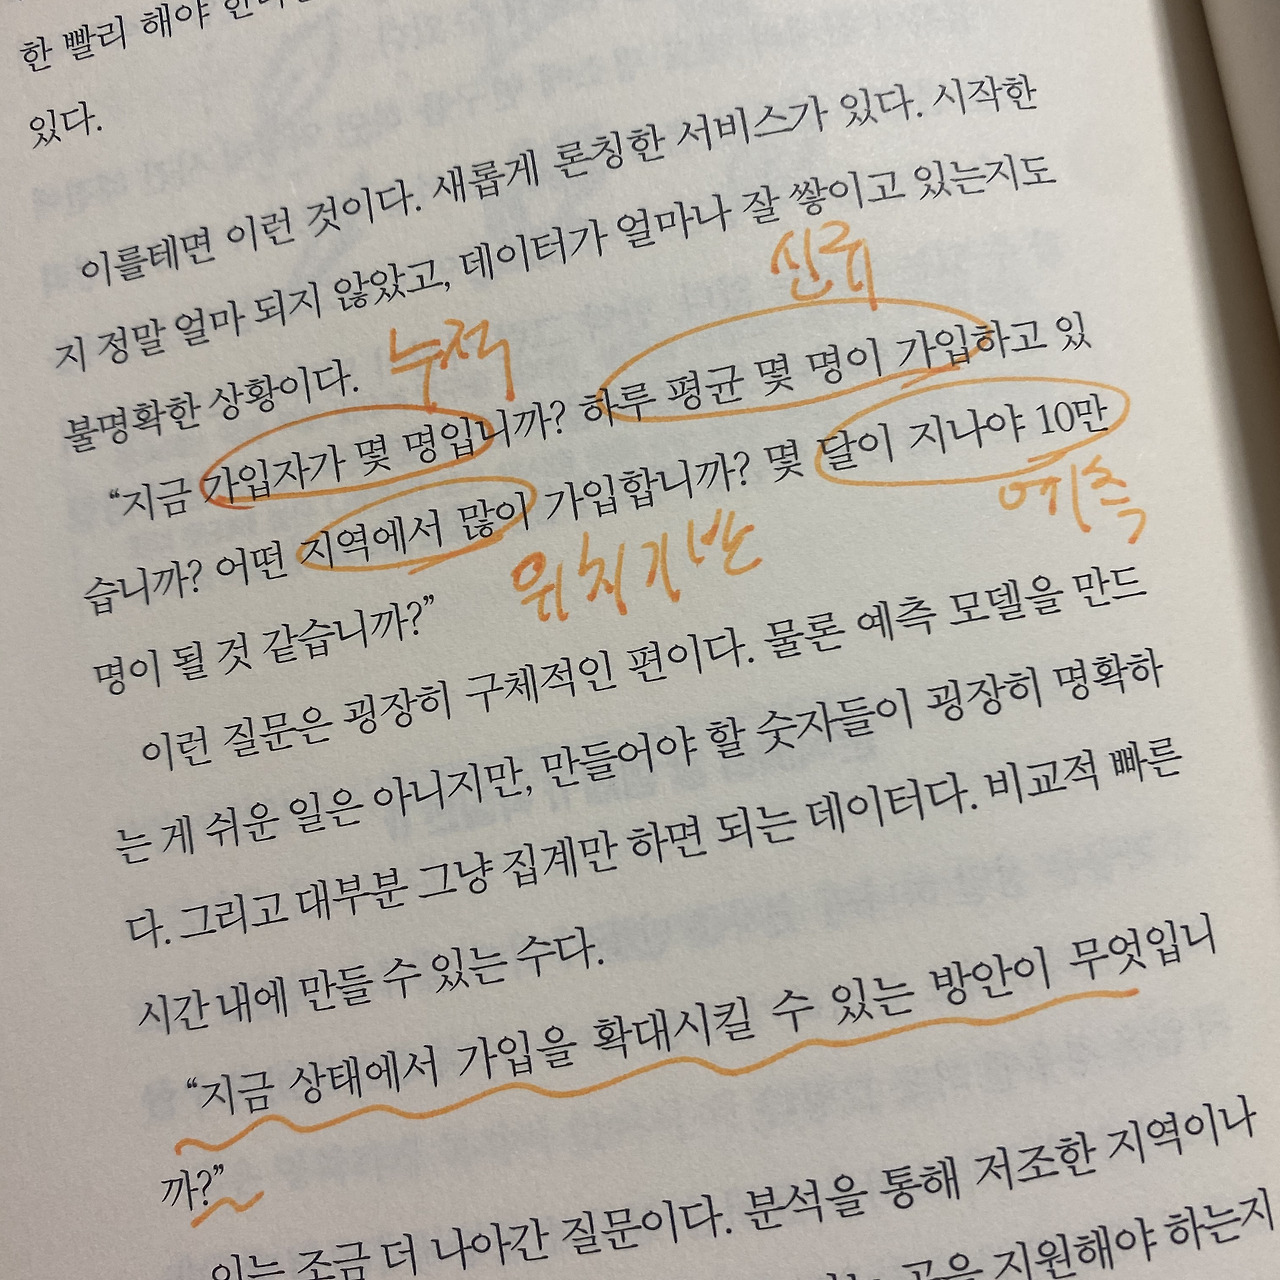 한 빨리 해야
있다.
이를테면 이런 것이다. 새롭게 론칭한 서비스가 있다. 시작한
지 정말 얼마 되지 않았고, 데이터가 얼마나 잘 쌓이고 있는지도
신규
불명확한 상황이다.
누적
“지금 가입자가 몇 명입니까? 하루 평균 몇 명이 가입하고 있
습니까? 어떤 지역에서 많이 가입합니까? 몇 달이 지나야 10만
예측
위치기반
명이 될 것 같습니까?”
이런 질문은 굉장히 구체적인 편이다. 물론 예측 모델을 만드
는 게 쉬운 일은 아니지만, 만들어야 할 숫자들이 굉장히 명확하
다. 그리고 대부분 그냥 집계만 하면 되는 데이터다. 비교적 빠른
시간 내에 만들 수 있는 수다.
“지금 상태에서 가입을 확대시킬 수 있는 방안이 무엇입니
까?”
이는 조금 더 나아간 질문이다. 분석을 통해 저조한 지역이나
곳을 지원해야 하는지